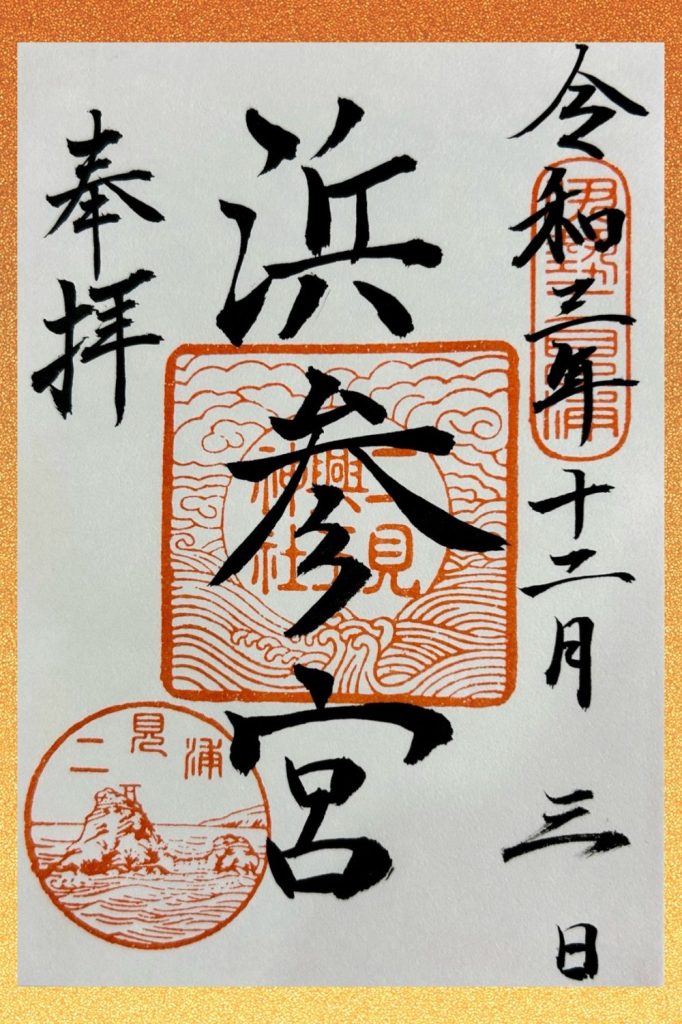 令和三年十二月三日
伊勢二見浦
浜参宮
二見興玉神社
奉拝
二見浦